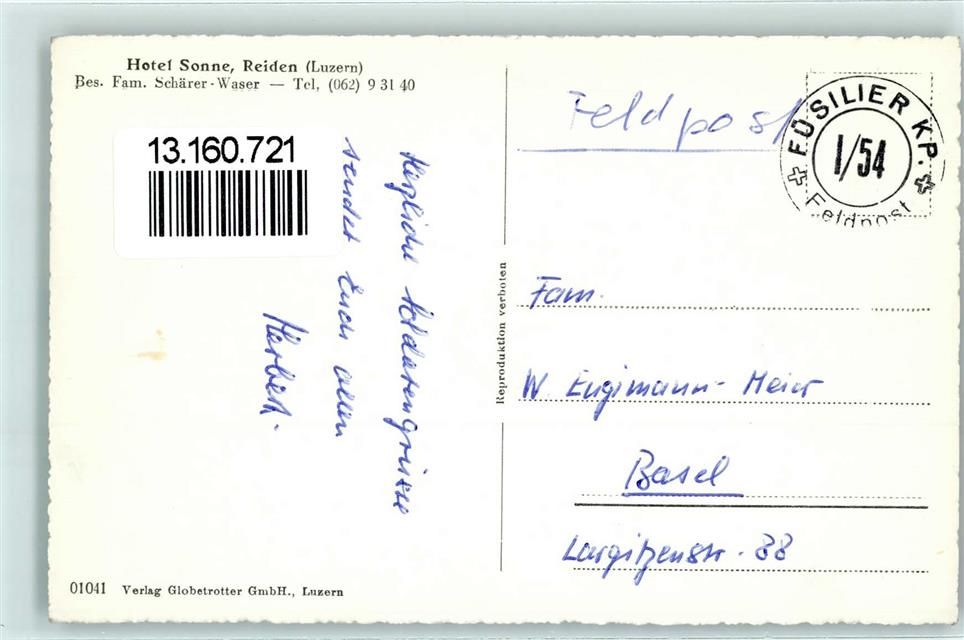 Hotel Sonne, Reiden (Luzern)
Bes. Fam. Schärer-Waser — Tel. (062) 9 31 40
13.160.721
Herzliche Soldatengrüsse
sendet Euch allen
Herbert.
01041 Verlag Globetrotter GmbH., Luzern
Reproduktion verboten
Feldpost
FÜSILIER KP.
I/54
Feldpost
Fam.
W. Engimann-Meier
Basel
Largitzenstr. 88